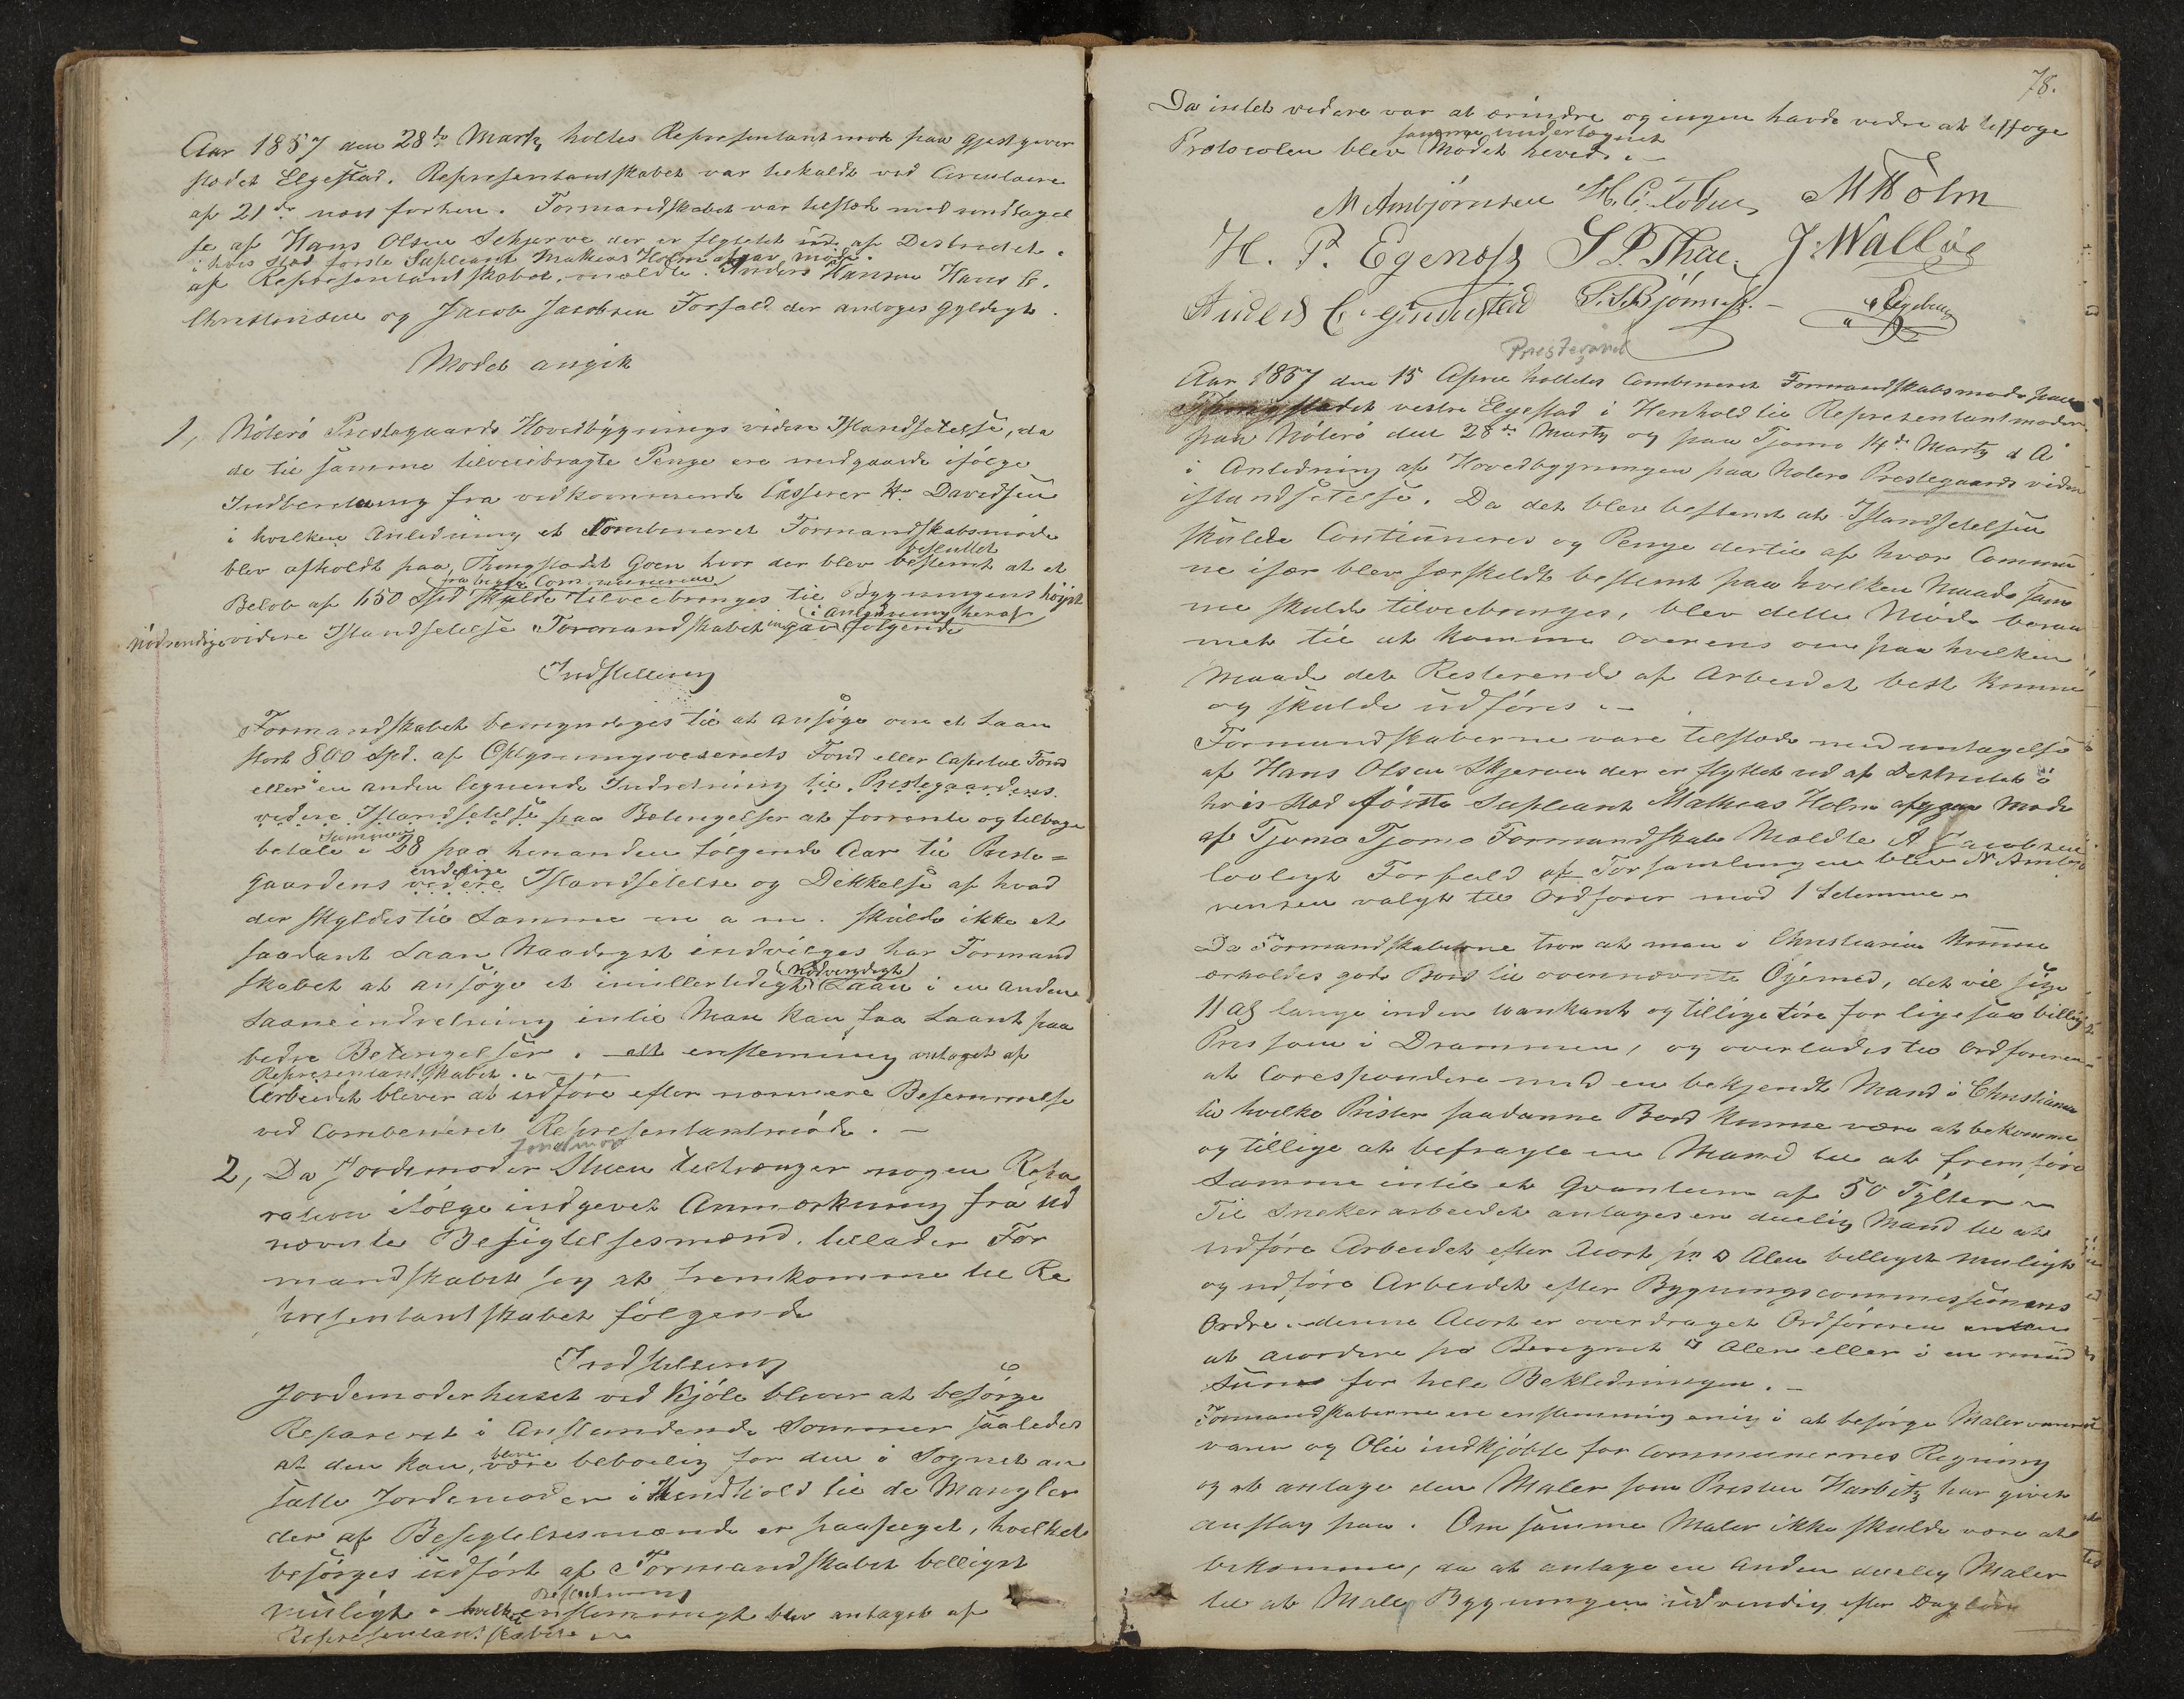 Aar 1857 den 28de Marts holtes Representantmøde paa Gjestgiver
stedet Elgestad. Representantskabet var tilkaldt ved Circulaire
af 21de næst forhen. Formandskabet var tilstæde med undtagel
se af Hans Olsen Schjerve der er flyttet ud af Destrectet.
i hvis Sted første Supleant Mathias Holm afgav møde.
af Representantskabet mældte Anders Hansen Hans C.
Christensen og Jacob Jacobsen Forfald der antoges gyldigt.
Mødet angik
1, Nøterø Prestegaards Hovedbygnings videre Istandsetelse, da
de til samme tilveiebragte Penge ere medgaaede ifølge
Indberetning fra vedkommende Casserer Hr Davidsen
i hvilken Anledning et Combineret Formandskabsmøde
blev afholdt paa Thingstedet Goen hvor der blev bestemt at et
besluttet
fra begge Communerne
Beløb af 1650 Spd skulde tilveiebringes til Bygningens høist
i anledning heraf
nødvendige videre Istandsetelse. Formandskabet indgav følgende
Indstilling
Formandskabet bemyndiges til at ansøge om et Laan
stort 800 Spd. af Oplysningsvesenets Fond eller Capitel Fond
eller i en anden lignende Indretning til Prestegaardens
videre Istandsetelse paa Betingelser at forrente og tilbage
Summen
betale i 28 paa hinanden følgende Aar til Preste=
endelige
gaardens videre Istandsetelse og Dekkelse af hvad
der skyldes til Samme m a m. skulde ikke et
saadant Laan Naadigst indvilges har Formand
(Nødvendigt)
skabet at ansøge et imidlertidigt Laan i en anden
Laaneindretning intil Man kan faa Laant paa
bedre Betingelser. – alt enstemmig antaget af
Representantskabet.
Arbeidet bliver at udføre efter nærmere Bestemmelse
ved Combineret Representantmøde. –
Jordmor
2, Da Jordemoder Stuen tiltrænger nogen Repa
ration ifølge indgivet Anmærkning fra ud
nævnte Besigtelsesmænd. tillader For
mandskabet sig at fremkomme til Re
presentantskabet følgende
Indstilling
Jordemoderhuset ved Kjøle bliver at besørge
Repareret i Anstundende Sommer saaledes
blive
at den kan være beboelig for den i Sognet an
satte Jordemoder i Hendhold til de Mangler
der af Besigtelsesmænde er paapeget, hvilket
besørges udført af Formandskabet billigst
Beslutning
muligt. hvilke enstemmigt blev antaget af
Representantskabet.
78.
Da intet videre var at erindre og ingen havde vedre at tilføge
samme undertegnet
Protocolen blev Mødet hevedt. –
N Ambjørnsen H. C. Foden M Holm
H. P. Egenæss S P Thae J. Walløe
Anders C. Gundstad S. S. Bjønness. –
Prestegård
Aar 1857 den 15 April holtes Combineret Formandskabsmøde paa
vestre Elgestad i Henhold til Representantmøder
paa Nøterø den 28de Marts og paa Tjømø 14de Marts d A
i Anledning af Hovedbygningen paa Nøterø Prestegaards videre
istandsetelse. Da det blev bestemt at Istandsetelsen
skulde Continueres og Penge dertil af hver Commu
ne især blev særskeldt bestemt paa hvilken Maade sam
me skulde tilveiebringes, blev dette Møde beram
met til at komme overens om paa hvilken
Maade det Resterende af Arbeidet best kunne
og skulde udføres. –
Formandskaberne vare tilstæde med untagelse
af Hans Olsen Skjerven der er flyttet ud af Destrectet i
hvis Sted første Supleant Mathias Holm afgav Møde
af Tjømø Tjømø Formandskab Mældte A Jacobsen
lovligt Forfald af Forsamlingen blev N. Ambjø
rensen valgt til Ordfører mod 1 Stemme.
Da Formandskaberne tror at man i Christiania kunne
erholdes gode Bord til ovennævnte Øjemed, det vil sige
11 al lange inden vankant og tillige tøre for ligesaa billig
Pris som i Drammen, og overlades til Ordføreren
at Corespondere med en bekjendt Mand i Christiania
til hvilke Priser saadanne Bord kunne være at bekomme
og tillige at befragte en Mand til at fremføre
Samme intil et Qvantum af 50 Tylter –
Til Snekerarbeidet antages en duelig Mand til at
udføre Arbeidet efter Acort pr □ Alen billigst muligt
og udføre Arbeidet efter Bygningscommissionens
Ordre. denne Acort er overdraget Ordføreren
at acordere pr Beregnet □ Alen eller i en rund
Sum for hele Bekledningen. –
Formandskaberne ere enstemmig enig i at besørge Malervarerne
varer og Olie indkjøbte for Communernes Regning
og at antage den Maler som Presten Harbitz har givet
anslag paa. Om samme Maler ikke skulde være at
bekomme, da at antage en anden duelig Maler
til at Male Bygningen udvendig efter Dagløn